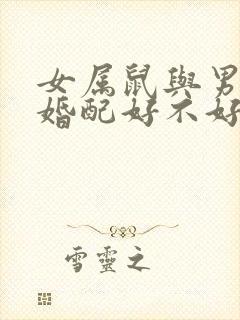 女属鼠與男
婚配好不好
雪靈之